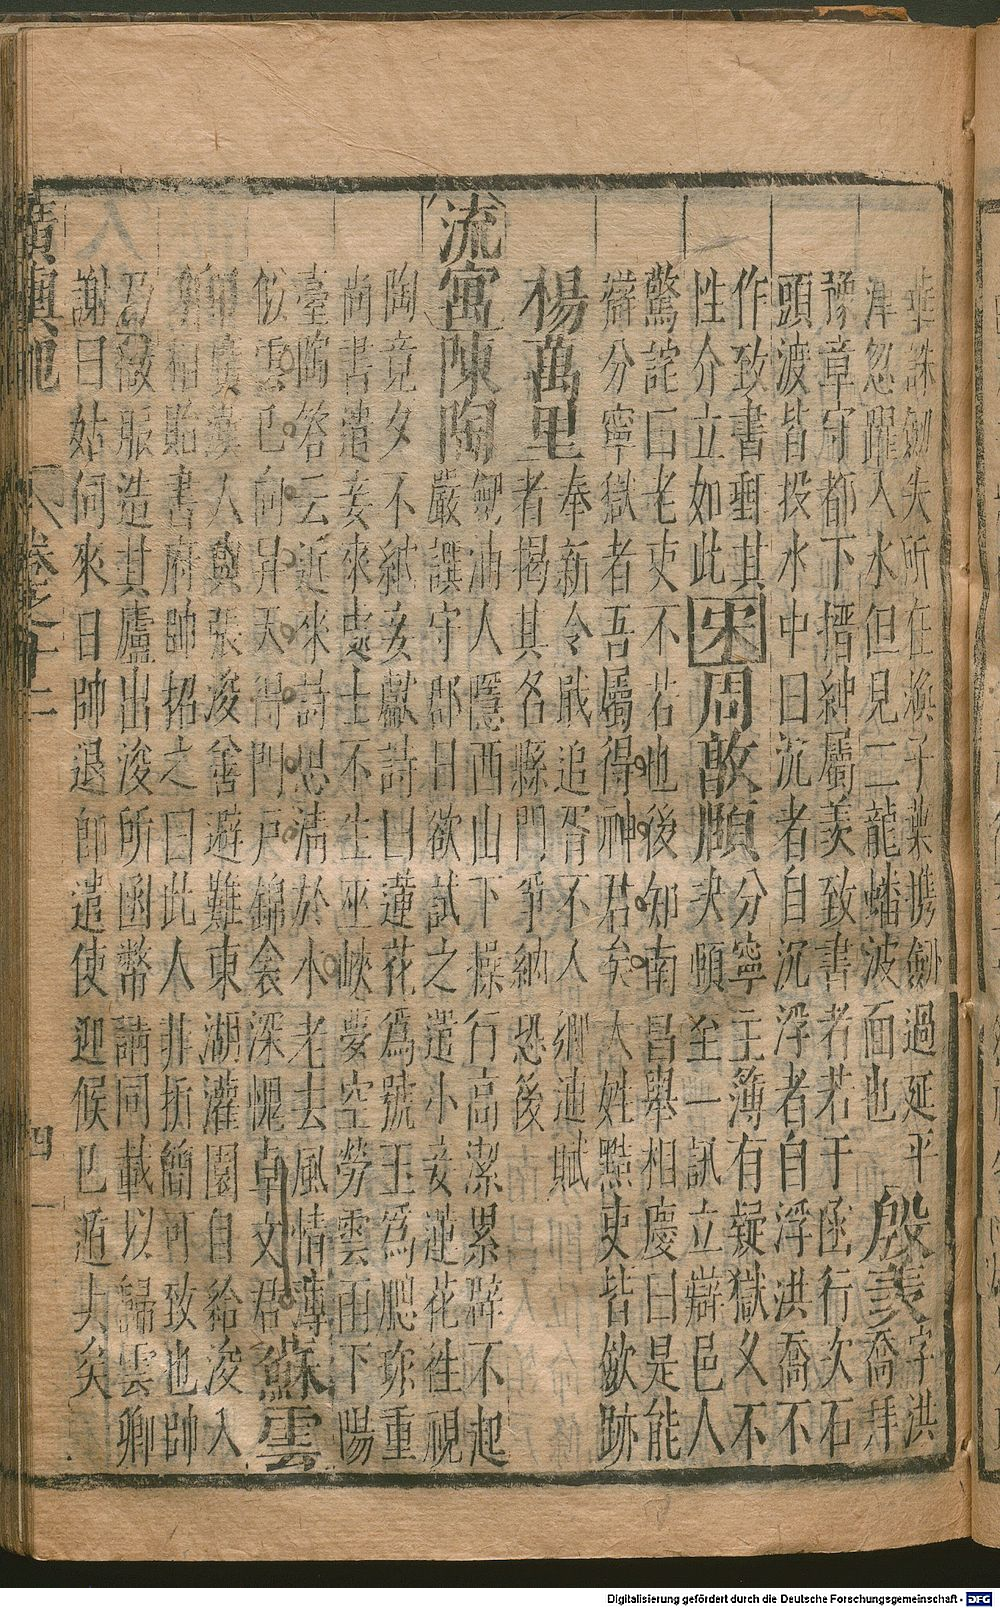 華誅劍失所在煥子葉携劍過延平
津忽躍入水但見二龍蟠波面也
殷羨
字洪
喬拜
豫章守都下搢紳屬羨致書者若于函行次石
頭渡皆投水中曰沉者自沉浮者自浮洪喬不
作致書郵其
性介立如此
宋周敦頤
分寧主簿有疑獄久不
決頤至一訊立辯邑人
驚詫曰老吏不若也後知南昌舉相慶曰是能
辯分寧獄者吾屬得神君矣人姓黠吏皆斂跡
楊萬里
奉新令戢追胥不入鄉逋賦
者揭其名縣門爭納恐後
流寓陳陶
劍浦人隱西山下操行高潔累辟不起
嚴譔守郡日欲試之遣小妾蓮花往視
陶竟夕不納妾獻詩曰蓮花爲號玉爲腮珎重
尚書遣妾來處士不生巫峽夢空勞雲雨下陽
臺陶答云近來詩思清於水老去風情薄
似雲已向昇天得門戶錦衾深愧卓文君
蘇雲
卿廣漢人與張浚善避難東湖灌園自給浚入
相貽書府帥招之曰此人非折簡可致也帥
乃微服造其廬出浚所函幣請同載以歸雲卿
謝曰姑伺來日帥退卽遣使迎候已遁去矣
廣輿記 卷之十二 四
Digitalisierung gefördert durch die Deutsche Forschungsgemeinschaft - DFG